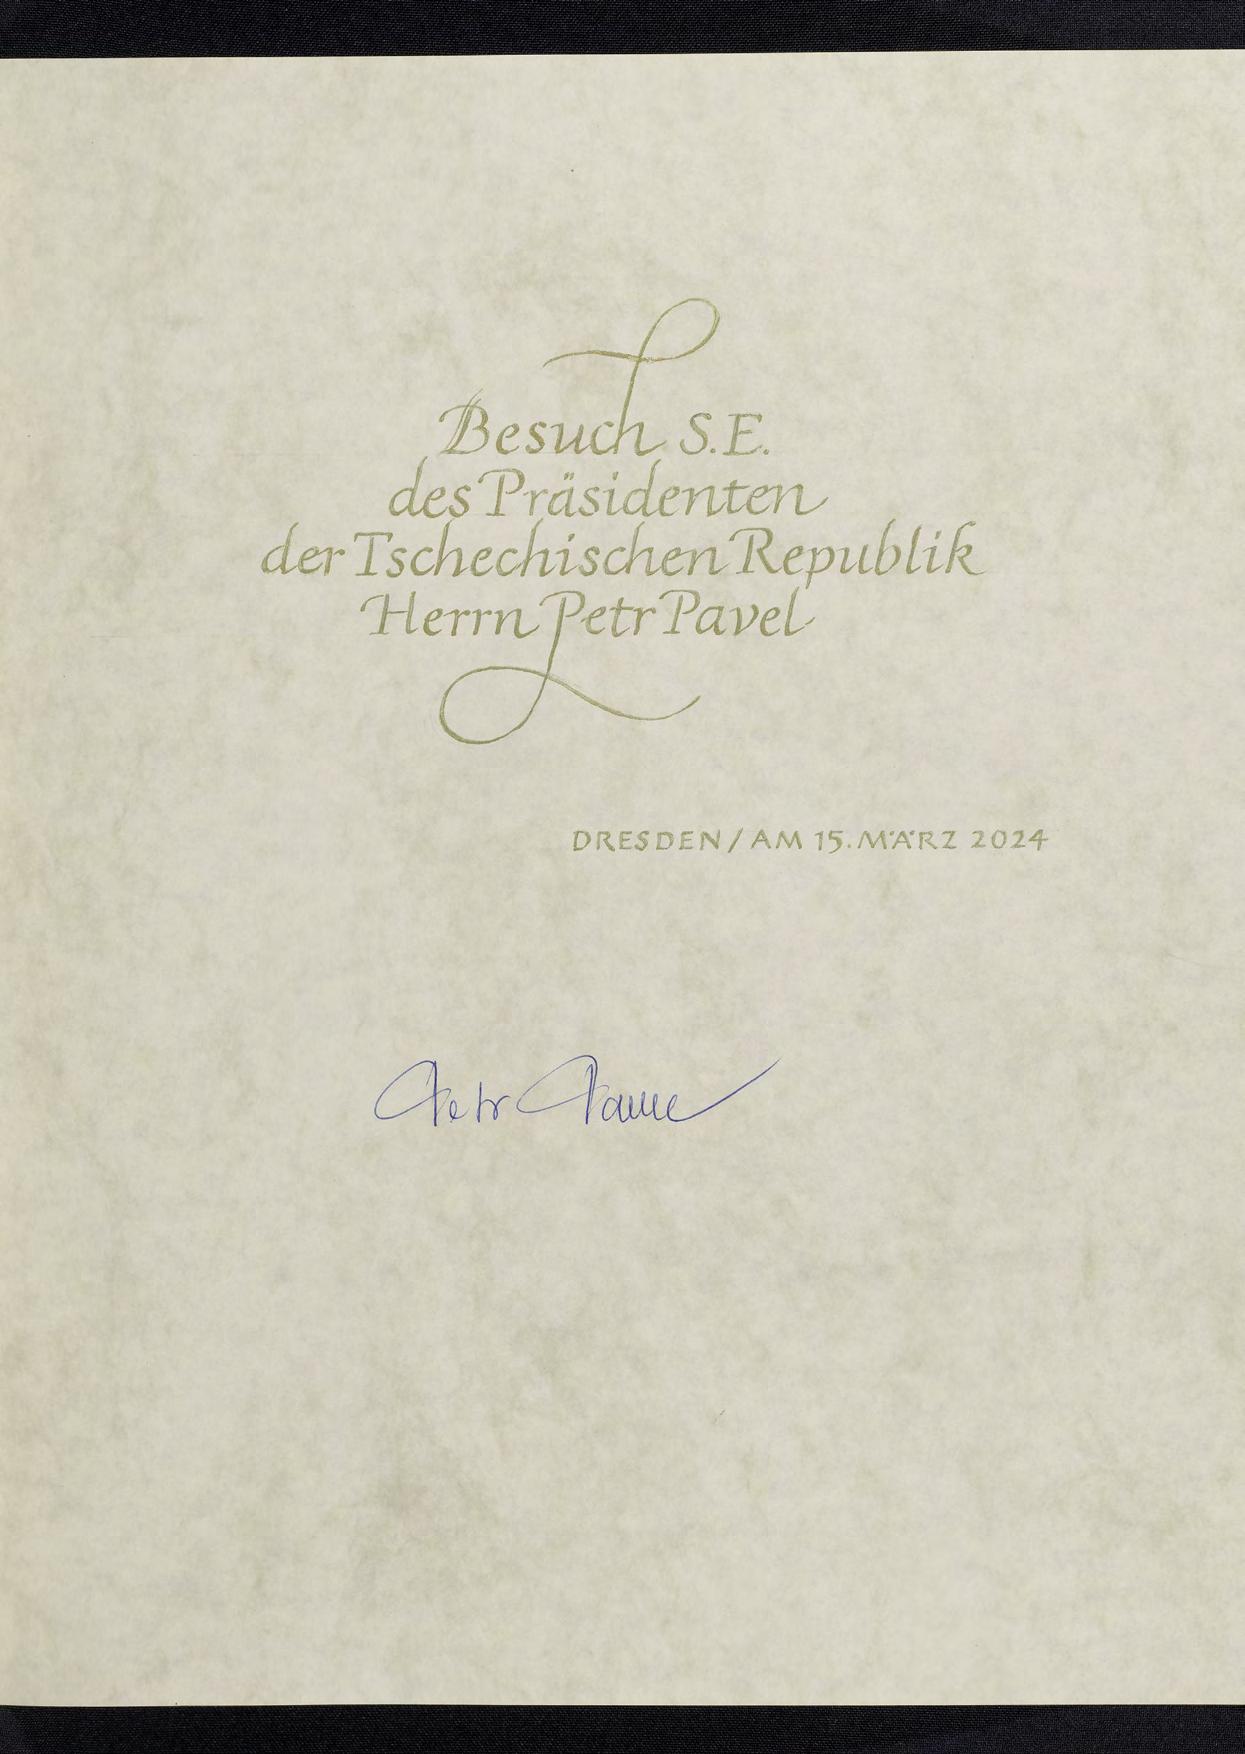 Besuch S.E.
des Präsidenten
der Tschechischen Republik
Herrn Petr Pavel
DRESDEN / AM 15. MÄRZ 2024
Petr Pavel